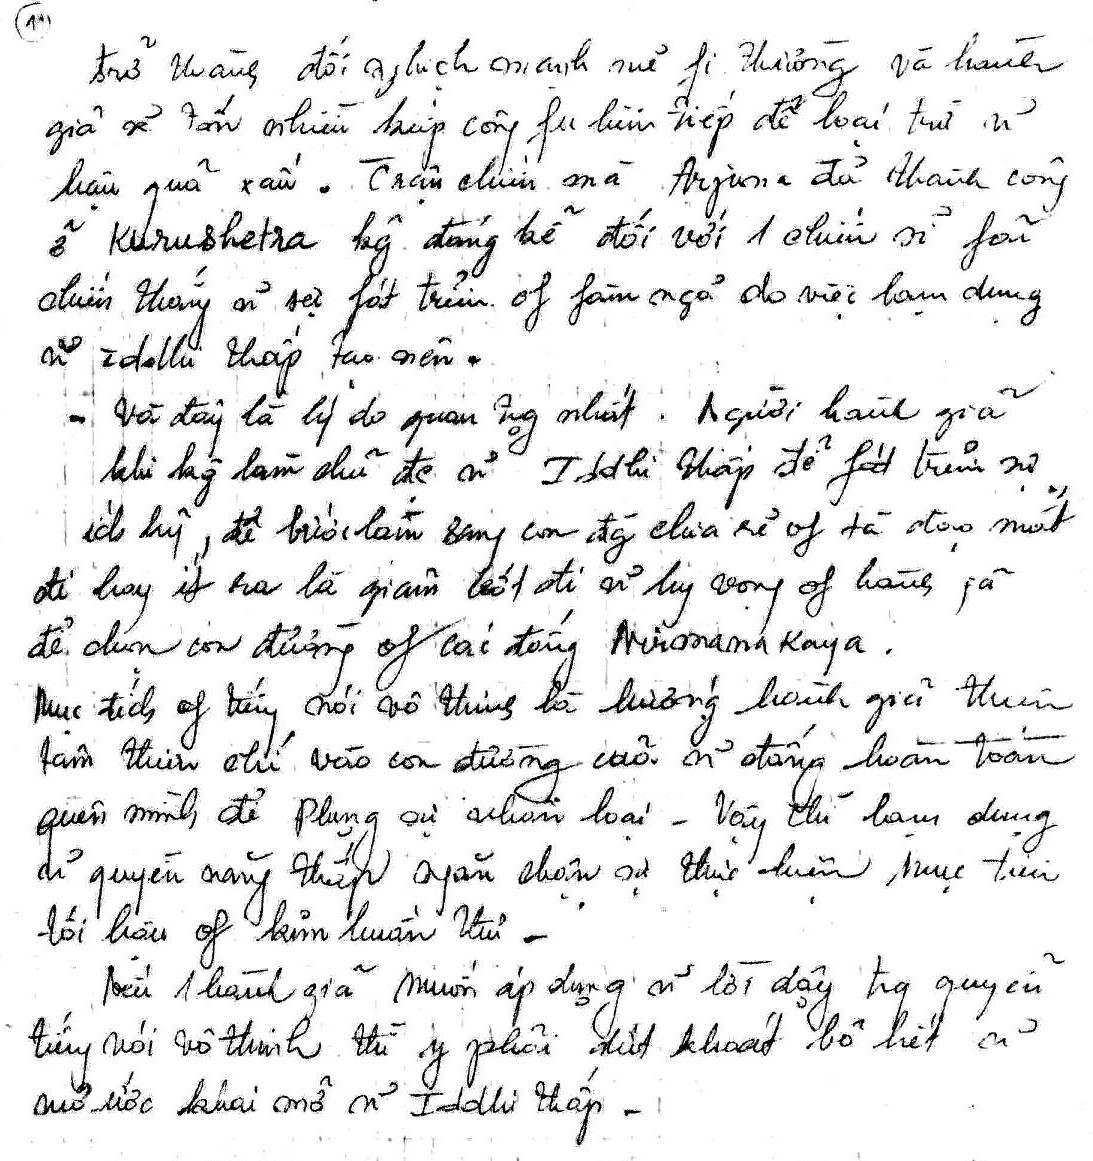 trở thành đối nghịch mạnh mẽ fi thường và hành
giả sẽ tốn nhiều kiếp công fu liên tiếp để loại trừ n~
hậu quả xấu. Trận chiến mà Arjuna đã thành công
ở Kurushetra kg đáng kể đối với 1 chiến sĩ fải
chiến thắng n~ sự fát triển of fàm ngã do việc lạm dụng
n~ Iddhi thấp tạo nên.
- Và đây là lý do quan tọg nhất. Người hành giả
khi kg làm chủ đc n~ Iddhi thấp để fát triển sự
ích kỷ, để bước lầm sang con đg chia rẽ of tà đạo mất
đi hay ít ra là giảm bớt đi n~ hy vọng of hành giả
để chọn con đường of các đấng Nirmanakaya.
Mục đích of tiếng nói vô thinh là hướng hành giả thiện
tâm thiện chí vào con đường của n~ đấng hoàn toàn
quên mình để Phụng sự nhân loại - Vậy thì lạm dụng
n~ quyền năng thấp ngăn chặn sự thực hiện mục tiêu
tối hậu of kim huấn thư -
Nếu 1 hành giả muốn áp dụng n~ lời dạy tg quyển
tiếng nói vô thinh thì y phải dứt khoát bỏ hết n~
mơ ước khai mở n~ Iddhi thấp -